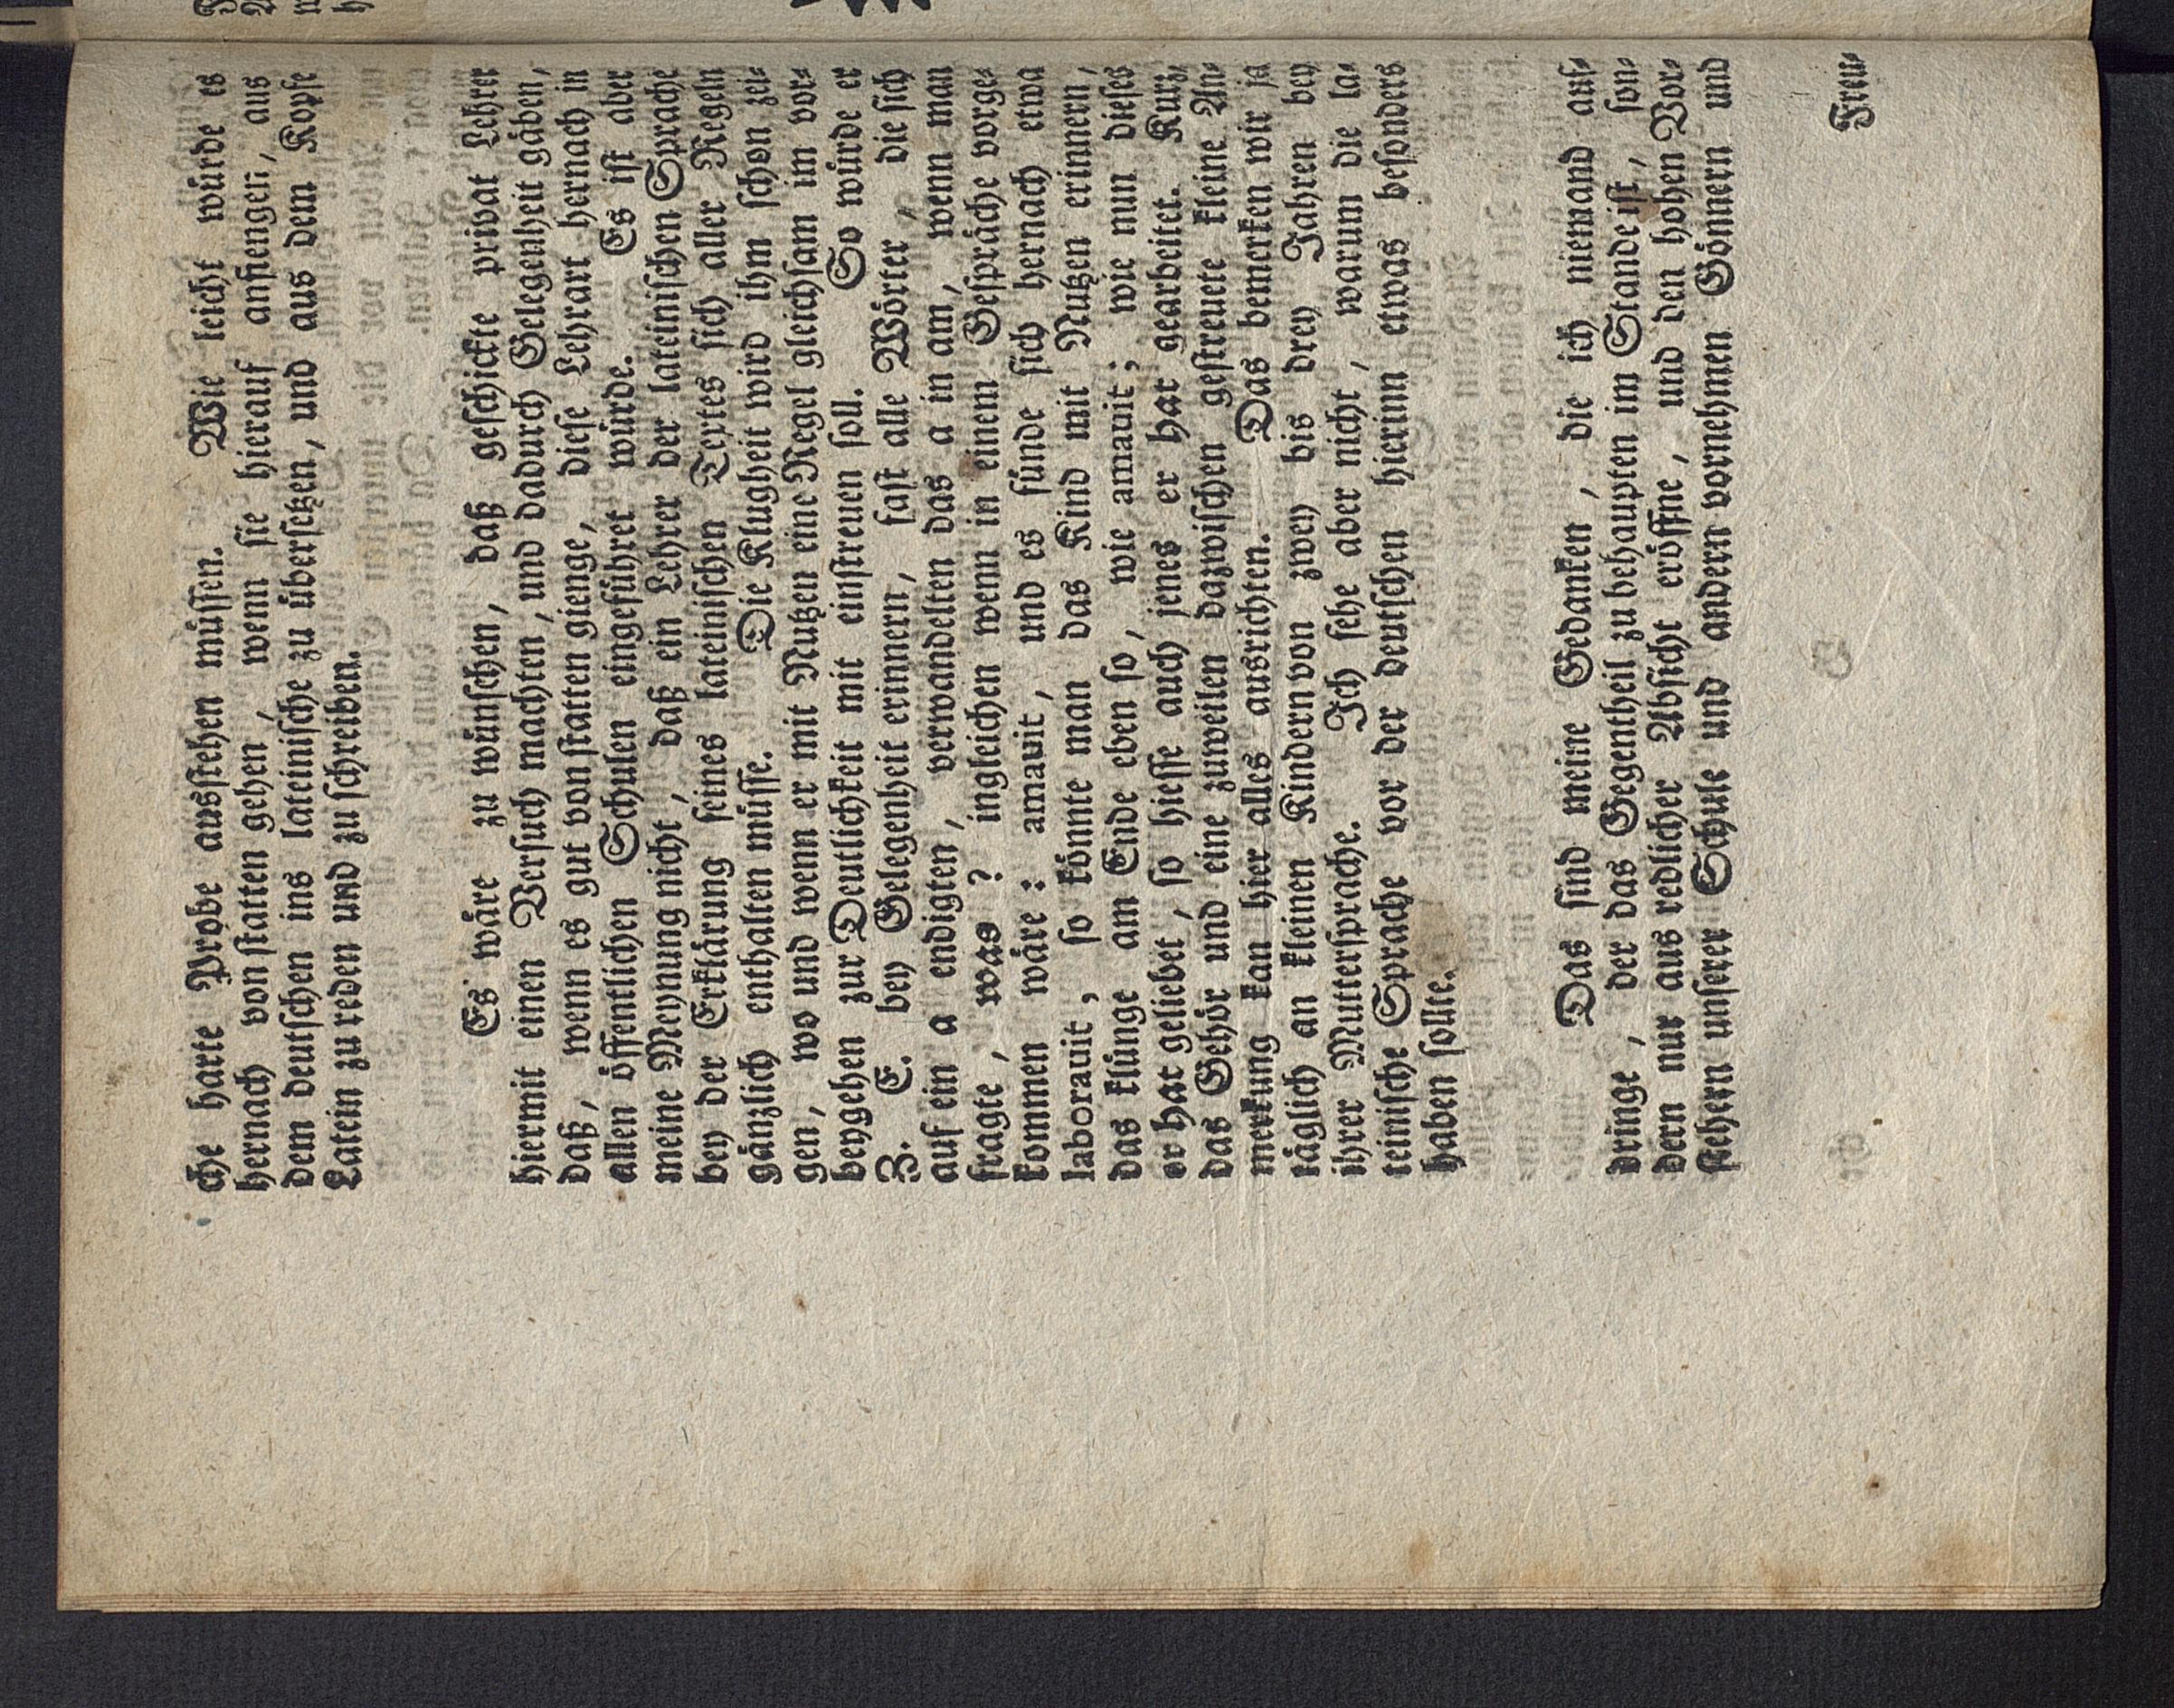 che harte Probe ausstehen müssen. Wie leicht würde es
hernach von statten gehen, wenn sie hierauf anfiengen, aus
dem deutschen ins lateinische zu übersetzen, und aus dem Kopfe
Latein zu reden und zu schreiben.
Es wäre zu wünschen, daß geschickte privat Lehrer
hiermit einen Versuch machten, und dadurch Gelegenheit gäben,
daß, wenn es gut von statten gienge, diese Lehrart hernach in
allen öffentlichen Schulen eingeführet würde. Es ist aber
meine Meynung nicht, daß ein Lehrer der lateinischen Sprache
bey der Erklärung seines lateinischen Textes sich aller Regeln
gänzlich enthalten müsse. Die Klugheit wird ihm schon zei-
gen, wo und wenn er mit Nutzen eine Regel gleichsam im vor-
beygehen zur Deutlichkeit mit einstreuen soll. So würde er
Z. E. bey Gelegenheit erinnern, fast alle Wörter, die sich
auf ein a endigten, verwandelten das a in am, wenn man
fragte, was? ingleichen wenn in einem Gespräche vorge-
kommen wäre: amauit, und es fünde sich hernach etwa
laborauit, so könnte man das Kind mit Nutzen erinnern,
das klünge am Ende eben so, wie amauit; wie nun dieses
er hat geliebet, so hiesse auch jenes er hat gearbeitet. Kurz,
das Gehör und eine zuweilen dazwischen gestreuete kleine An-
merkung kan hier alles ausrichten. Das bemerken wir ja
täglich an kleinen Kindern von zwey bis drey Jahren bey
ihrer Muttersprache. Ich sehe aber nicht, warum die la-
teinische Sprache vor der deutschen hierinn etwas besonders
haben sollte.
Das sind meine Gedanken, die ich niemand auf-
dringe, der das Gegentheil zu behaupten im Stande ist, son-
dern nur aus redlicher Absicht eröffne, und den hohen Vor-
stehern unserer Schule und andern vornehmen Gönnern und
Freu-